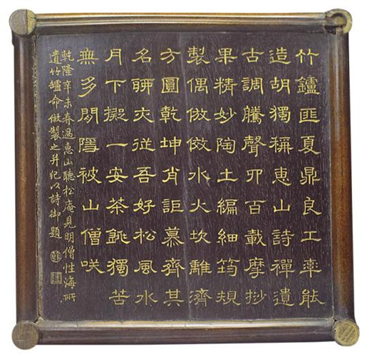 竹鑪匪夏鼎良工率能
造胡獨稱惠山詩禪遺
古調騰聲四百載摩挲
果精妙陶土編細筠規
製偶倣傚水火坎離濟
方圓乾坤肖詎慕齊其
名聊亦從吾好松風水
月下擬一安茶銚獨苦
無多閒隱被山僧咲
乾隆辛未春過惠山聽松庵見明僧性海所
遺竹鑪命倣製之并紀以詩御題